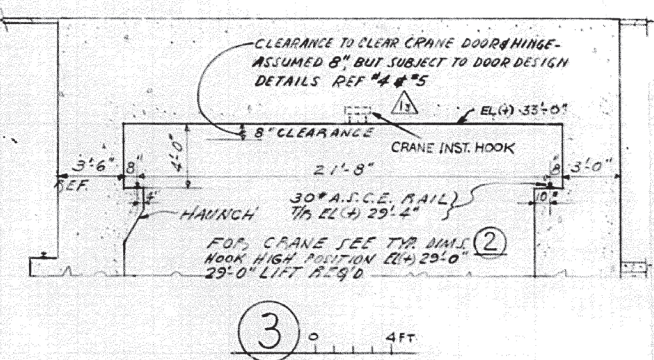 CLEARANCE TO CLEAR CRANE DOOR & HINGE-
ASSUMED 8", BUT SUBJECT TO DOOR DESIGN
DETAILS REF #4 & #5
13
EL(+) 33'-0"
8" CLEARANCE
CRANE INST. HOOK
3'-6"
REF.
8"
4'-0"
21'-8"
8"
3'-0"
4"
HAUNCH
30# A.S.C.E. RAIL
T/R EL(+) 29'-4"
10"
FOR CRANE SEE TYP. DIMS. 2
HOOK HIGH POSITION EL(+) 29'-0"
29'-0" LIFT REQ'D
3
0 4 FT